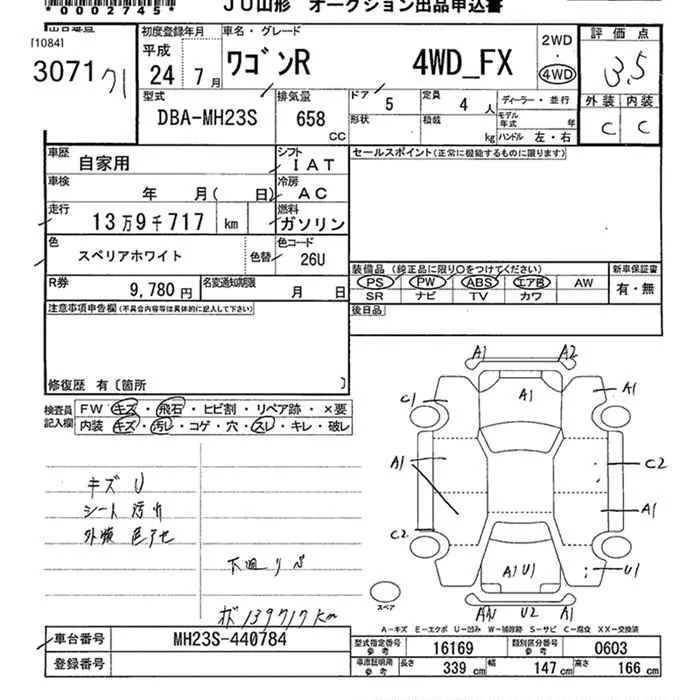 *0002745*
JU山形 オークション出品申込書
[1084]
3071 71
初度登録年月
平成
24年 7月
車名・グレード
ワゴンR 4WD_FX
2WD
・
4WD
評価点
3.5
外装 内装
C C
型式
DBA-MH23S
排気量
658
CC
ドア 5
定員 4 人
形状
積載
kg
ディーラー・並行
モデル年式 年
ハンドル 左・右
車歴
自家用
シフト
IAT
セールスポイント(正常に機能するものに限ります)
車検
年 月( 日)
冷房
AC
走行
13万9千717 km
燃料
ガソリン
色
スペリアホワイト
色替
色コード
26U
R券
9,780 円
名変通知期限
月 日
装備品(純正品に限り○をつけてください)
PS PW ABS エアB AW
SR ナビ TV カワ
新車保証書
有・無
後日品
注意事項申告欄(不具合内容等は具体的に記入して下さい)
修復歴 有〔箇所 〕
検査員記入欄
FW キズ・飛石・ヒビ割・リペア跡・×要
内装 キズ・汚レ・コゲ・穴・スレ・キレ・破レ
キズ U
シート 汚れ
外装 色アセ
下廻り
139717km
A1 A2
A1
C1
A1
A1
C2
C2
A1
A1 U1
U1
スペア
U2 A1
A-キズ E-エクボ U-凹み W-補修跡 S-サビ C-腐食 XX-交換済
車台番号
MH23S-440784
登録番号
型式指定番号 参考
16169
類別区分番号 参考
0603
車庫証明用 参考
長さ 339 cm
幅 147 cm
高さ 166 cm